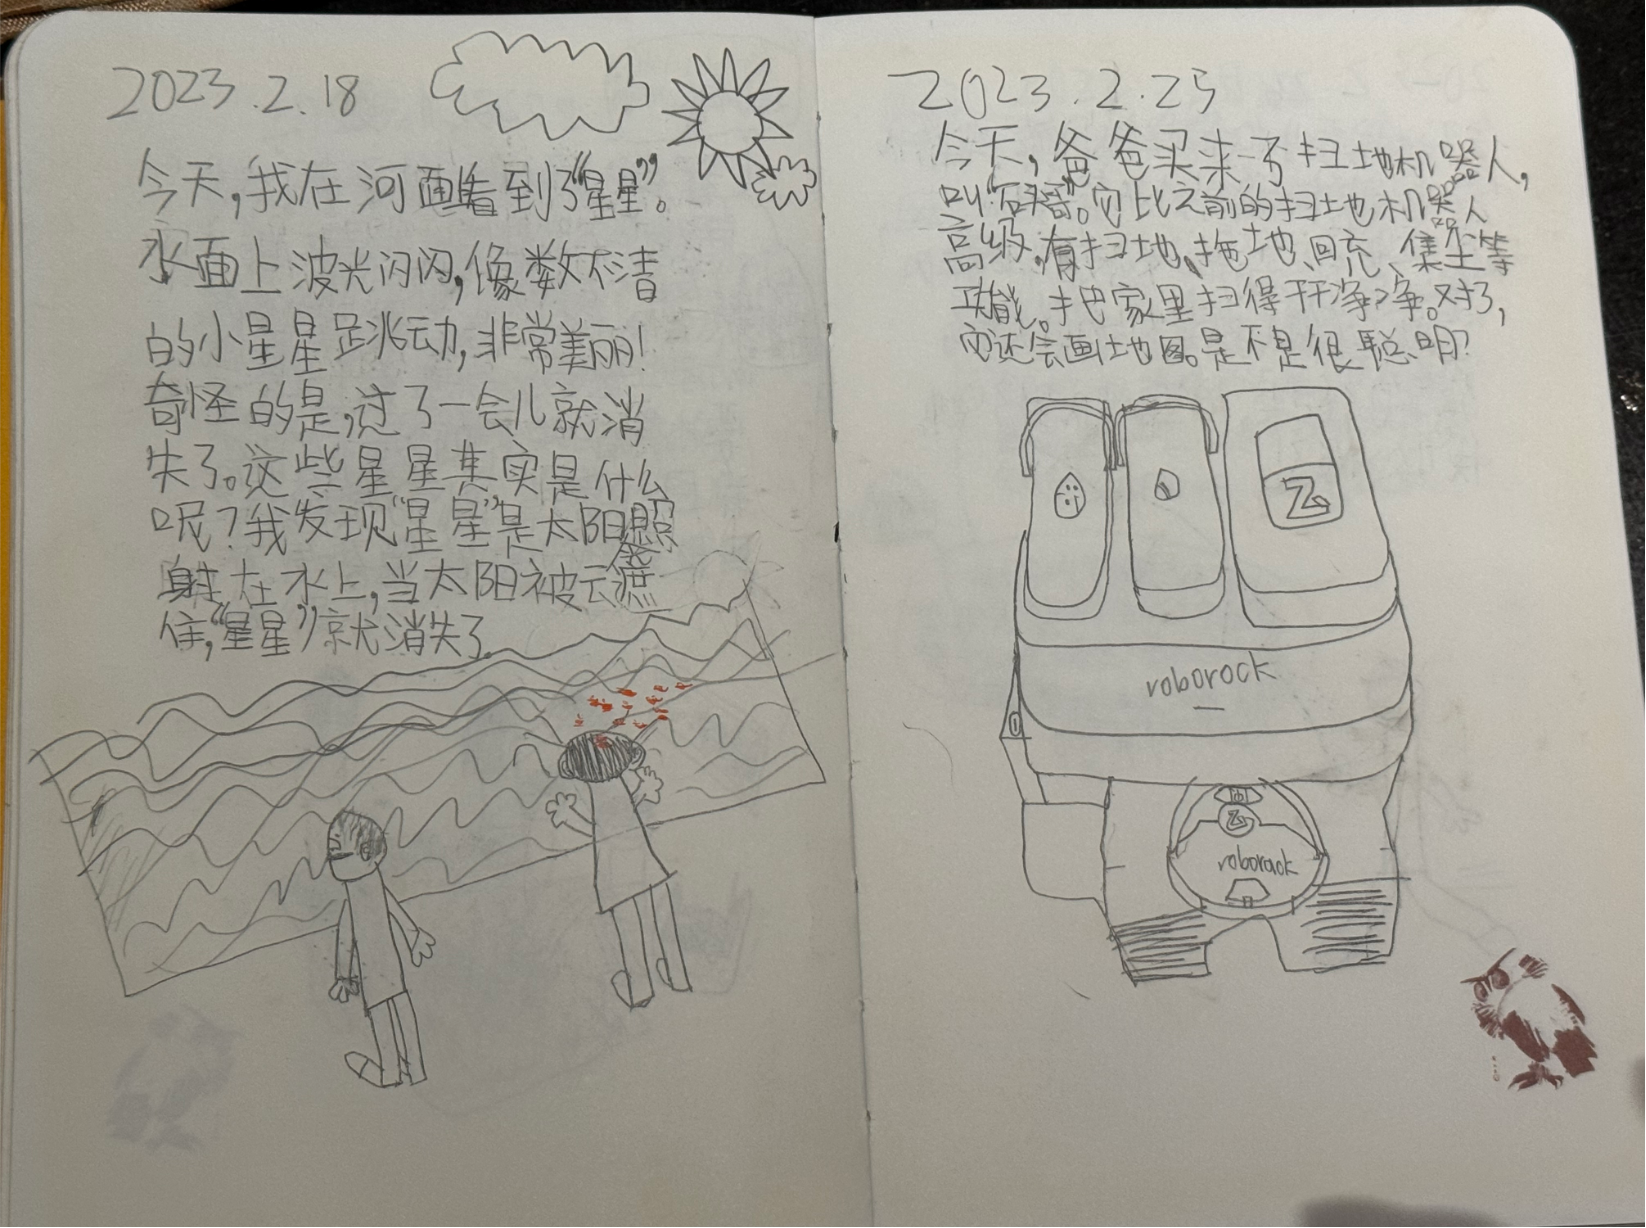 2023.2.18
今天,我在河画看到了“星星”。
水面上波光闪闪,像数不清
的小星星跳动,非常美丽!
奇怪的是,过了一会儿就消
失了。这些星星其实是什么
呢?我发现“星星”是太阳照
射在水上,当太阳被云遮
住,“星星”就消失了。
2023.2.25
今天,爸爸买来了扫地机器人,
叫“石头”。它比之前的扫地机器人
高级,有扫地、拖地、回充、集尘等
功能。把家里扫得干干净净。对了,
它还会画地图。是不是很聪明?
roborock
roborock